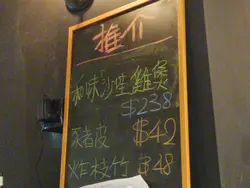 推介
和味沙笠雞煲
$238
豬皮 $42
炸枝竹 $48